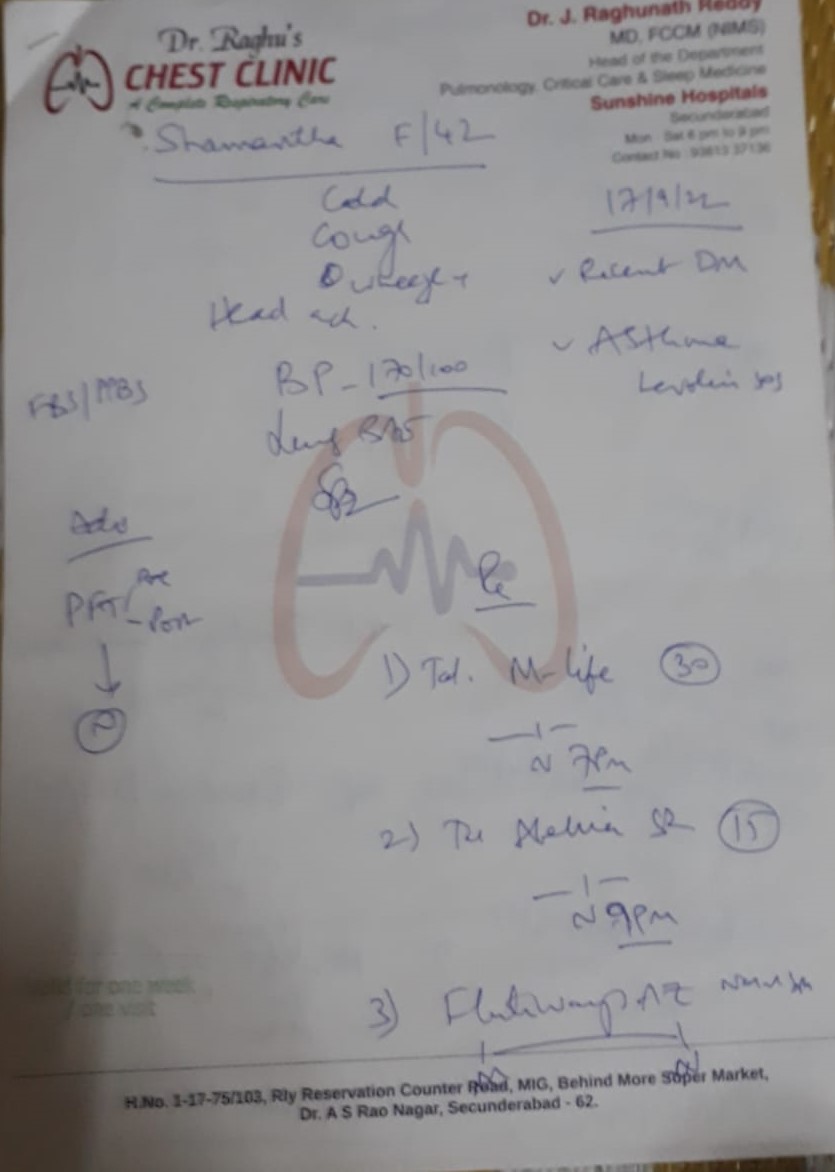 Dr. Raghu's
CHEST CLINIC
A Complete Respiratory Care
Dr. J. Raghunath Reddy
MD, FCCM (NIMS)
Head of the Department
Pulmonology, Critical Care & Sleep Medicine
Sunshine Hospitals
Secunderabad
Mon - Sat 6 pm to 9 pm
Contact No : 93813 37136
Shamantha F/42
17/9/22
Cold
Cough
Head ach.
✓ Recent DM
✓ Asthma
Levolin sos
FBS/
BP - 170/100
Lung
Adv
PFT Pre
- Post
Rx
1) Tab. M-life 30
N 7pm
2) SR 15
N 9pm
3)
Valid for one week
/ one visit
H.No. 1-17-75/103, Rly Reservation Counter Road, MIG, Behind More Super Market,
Dr. A S Rao Nagar, Secunderabad - 62.